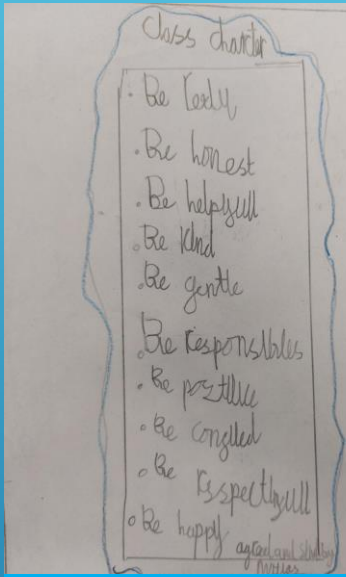 Class charter
• Be
• Be honest
• Be helpfull
• Be kind
• Be gentle
• Be responsibles
• Be
• Be
• Be respectfull
• Be happy
agreed and by